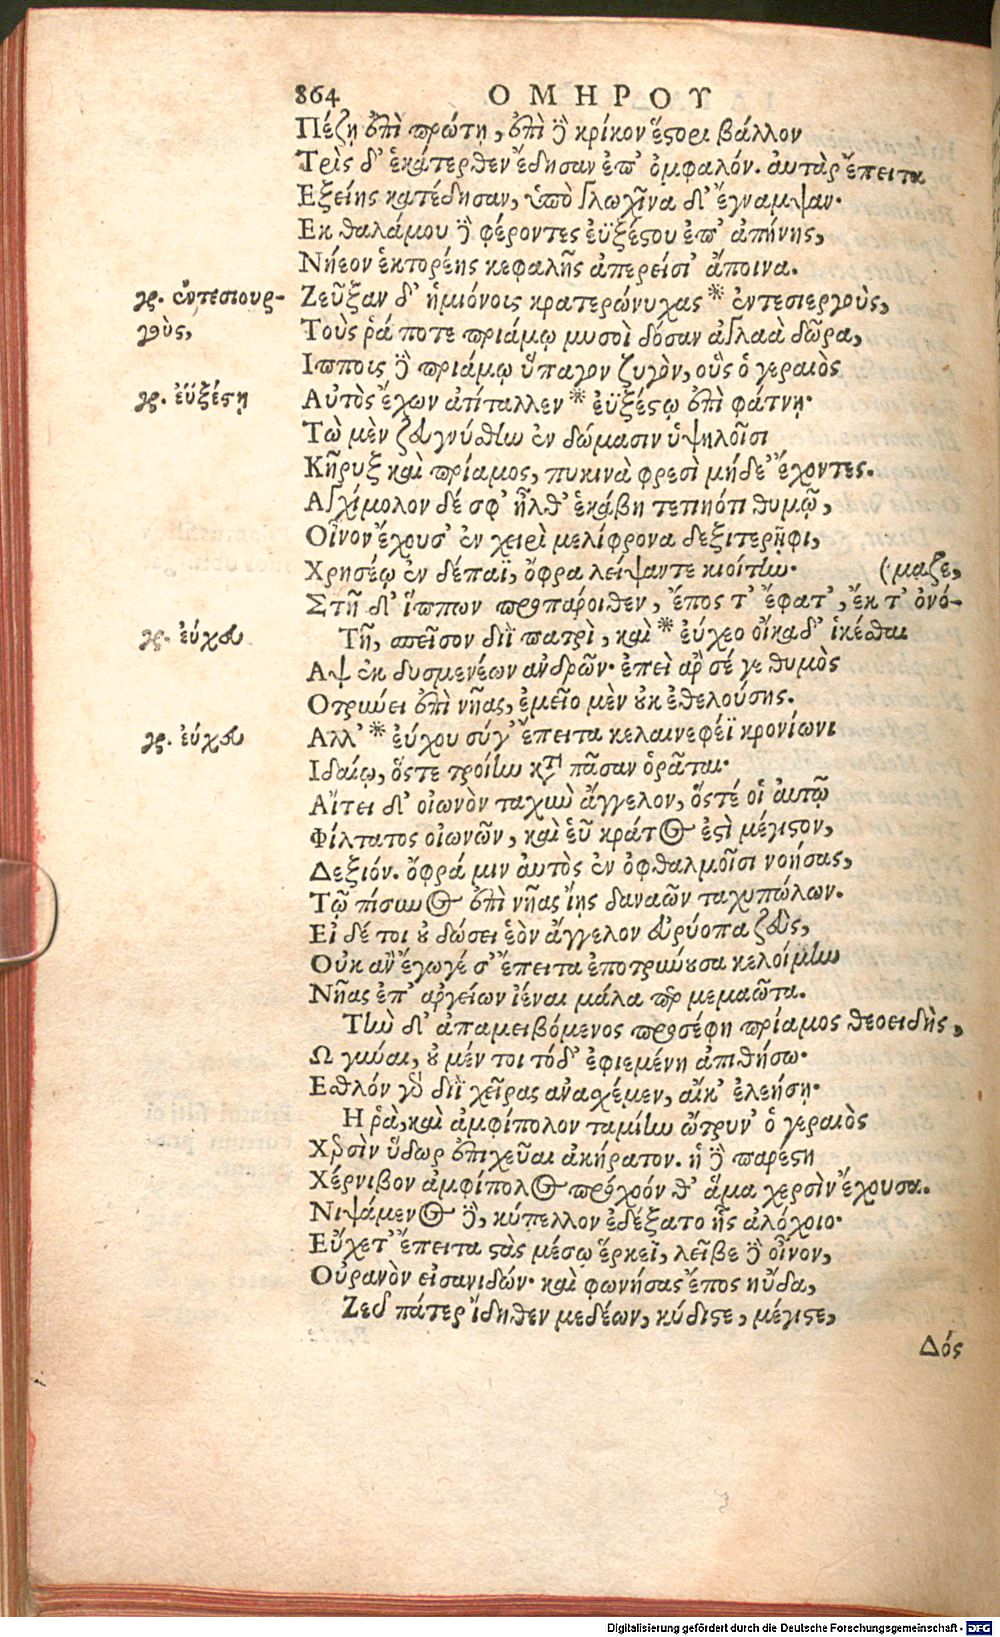 864 ΟΜΗΡΟΥ
Πέζῃ ἐπὶ πρώτῃ, ἐπὶ δὲ κρίκον ἕστορι βάλλον
Τρὶς δ' ἑκάτερθεν ἔδησαν ἐπ' ὀμφαλόν. αὐτὰρ ἔπειτα
Εξείης κατέδησαν, ὑπὸ γλωχῖνα δ' ἔγναμψαν·
Εκ θαλάμου δὲ φέροντες ἐϋξέστου ἐπ' ἀπήνης,
Νήεον ἑκτορέης κεφαλῆς ἀπερείσι' ἄποινα.
γρ. ἐντεσιουρ- Ζεῦξαν δ' ἡμιόνοις κρατερώνυχας * ἐντεσιεργοὺς,
γοὺς, Τοὺς ῥά ποτε πριάμῳ μυσοὶ δόσαν ἀγλαὰ δῶρα,
Ιπποις δὲ πριάμῳ ὕπαγον ζυγὸν, οὓς ὁ γεραιὸς
γρ. ἐϋξέστῃ Αὐτὸς ἔχων ἀτίταλλεν * ἐϋξέστῳ ἐπὶ φάτνῃ·
Τὼ μὲν ζευγνύσθην ἐν δώμασιν ὑψηλοῖσι
Κῆρυξ καὶ πρίαμος, πυκινὰ φρεσὶ μήδε' ἔχοντες.
Αγχίμολον δέ σφ' ἦλθ' ἑκάβη τετιηότι θυμῷ,
Οἶνον ἔχουσ' ἐν χειρὶ μελίφρονα δεξιτερῆφι,
Χρησέῳ ἐν δέπαϊ, ὄφρα λείψαντε κιοίτην· (μαζε,
Στῆ δ' ἵππων προπάροιθεν, ἔπος τ' ἔφατ', ἔκ τ' ὀνό-
γρ. εὔχευ Τῆ, σπεῖσον διῒ πατρὶ, καὶ * εὔχεο οἴκαδ' ἱκέσθαι
Αψ ἐκ δυσμενέων ἀνδρῶν· ἐπεὶ ἂρ σέ γε θυμὸς
Οτρύνει ἐπὶ νῆας, ἐμεῖο μὲν οὐκ ἐθελούσης.
γρ. εὔχευ Αλλ' * εὔχου σύγ' ἔπειτα κελαινεφέϊ κρονίωνι
Ιδαίῳ, ὅστε τροίην κατὰ πᾶσαν ὁρᾶται·
Αἴτει δ' οἰωνὸν ταχὺν ἄγγελον, ὅστέ οἱ αὐτῷ
Φίλτατος οἰωνῶν, καὶ εὗ κράτος ἐστὶ μέγιστον,
Δεξιόν. ὄφρά μιν αὐτὸς ἐν ὀφθαλμοῖσι νοήσας,
Τῷ πίσυνος ἐπὶ νῆας ἴῃς δαναῶν ταχυπώλων.
Εἰ δέ τοι οὐ δώσει ἑὸν ἄγγελον εὐρύοπα ζεὺς,
Οὐκ ἂν ἔγωγέ σ' ἔπειτα ἐποτρύνουσα κελοίμην
Νῆας ἐπ' ἀργείων ἰέναι μάλα περ μεμαῶτα.
Τὴν δ' ἀπαμειβόμενος προσέφη πρίαμος θεοειδὴς,
Ω γύναι, οὐ μέν τοι τόδ' ἐφιεμένῃ ἀπιθήσω·
Εσθλόν γὰρ διῒ χεῖρας ἀνασχέμεν, αἴκ' ἐλεήσῃ·
Η ῥὰ, καὶ ἀμφίπολον ταμίην ὤτρυν' ὁ γεραιὸς
Χερσὶν ὕδωρ ἐπιχεῦαι ἀκήρατον. ἡ δὲ παρέστη
Χέρνιβον ἀμφίπολος πρόχοόν θ' ἅμα χερσὶν ἔχουσα.
Νιψάμενος δὲ, κύπελλον ἐδέξατο ἧς ἀλόχοιο·
Εὔχετ' ἔπειτα στὰς μέσῳ ἕρκεϊ, λεῖβε δὲ οἶνον,
Οὐρανὸν εἰσανιδών· καὶ φωνήσας ἔπος ηὔδα,
Ζεῦ πάτερ ἴδηθεν μεδέων, κύδιστε, μέγιστε,
Δός
Digitalisierung gefördert durch die Deutsche Forschungsgemeinschaft - DFG